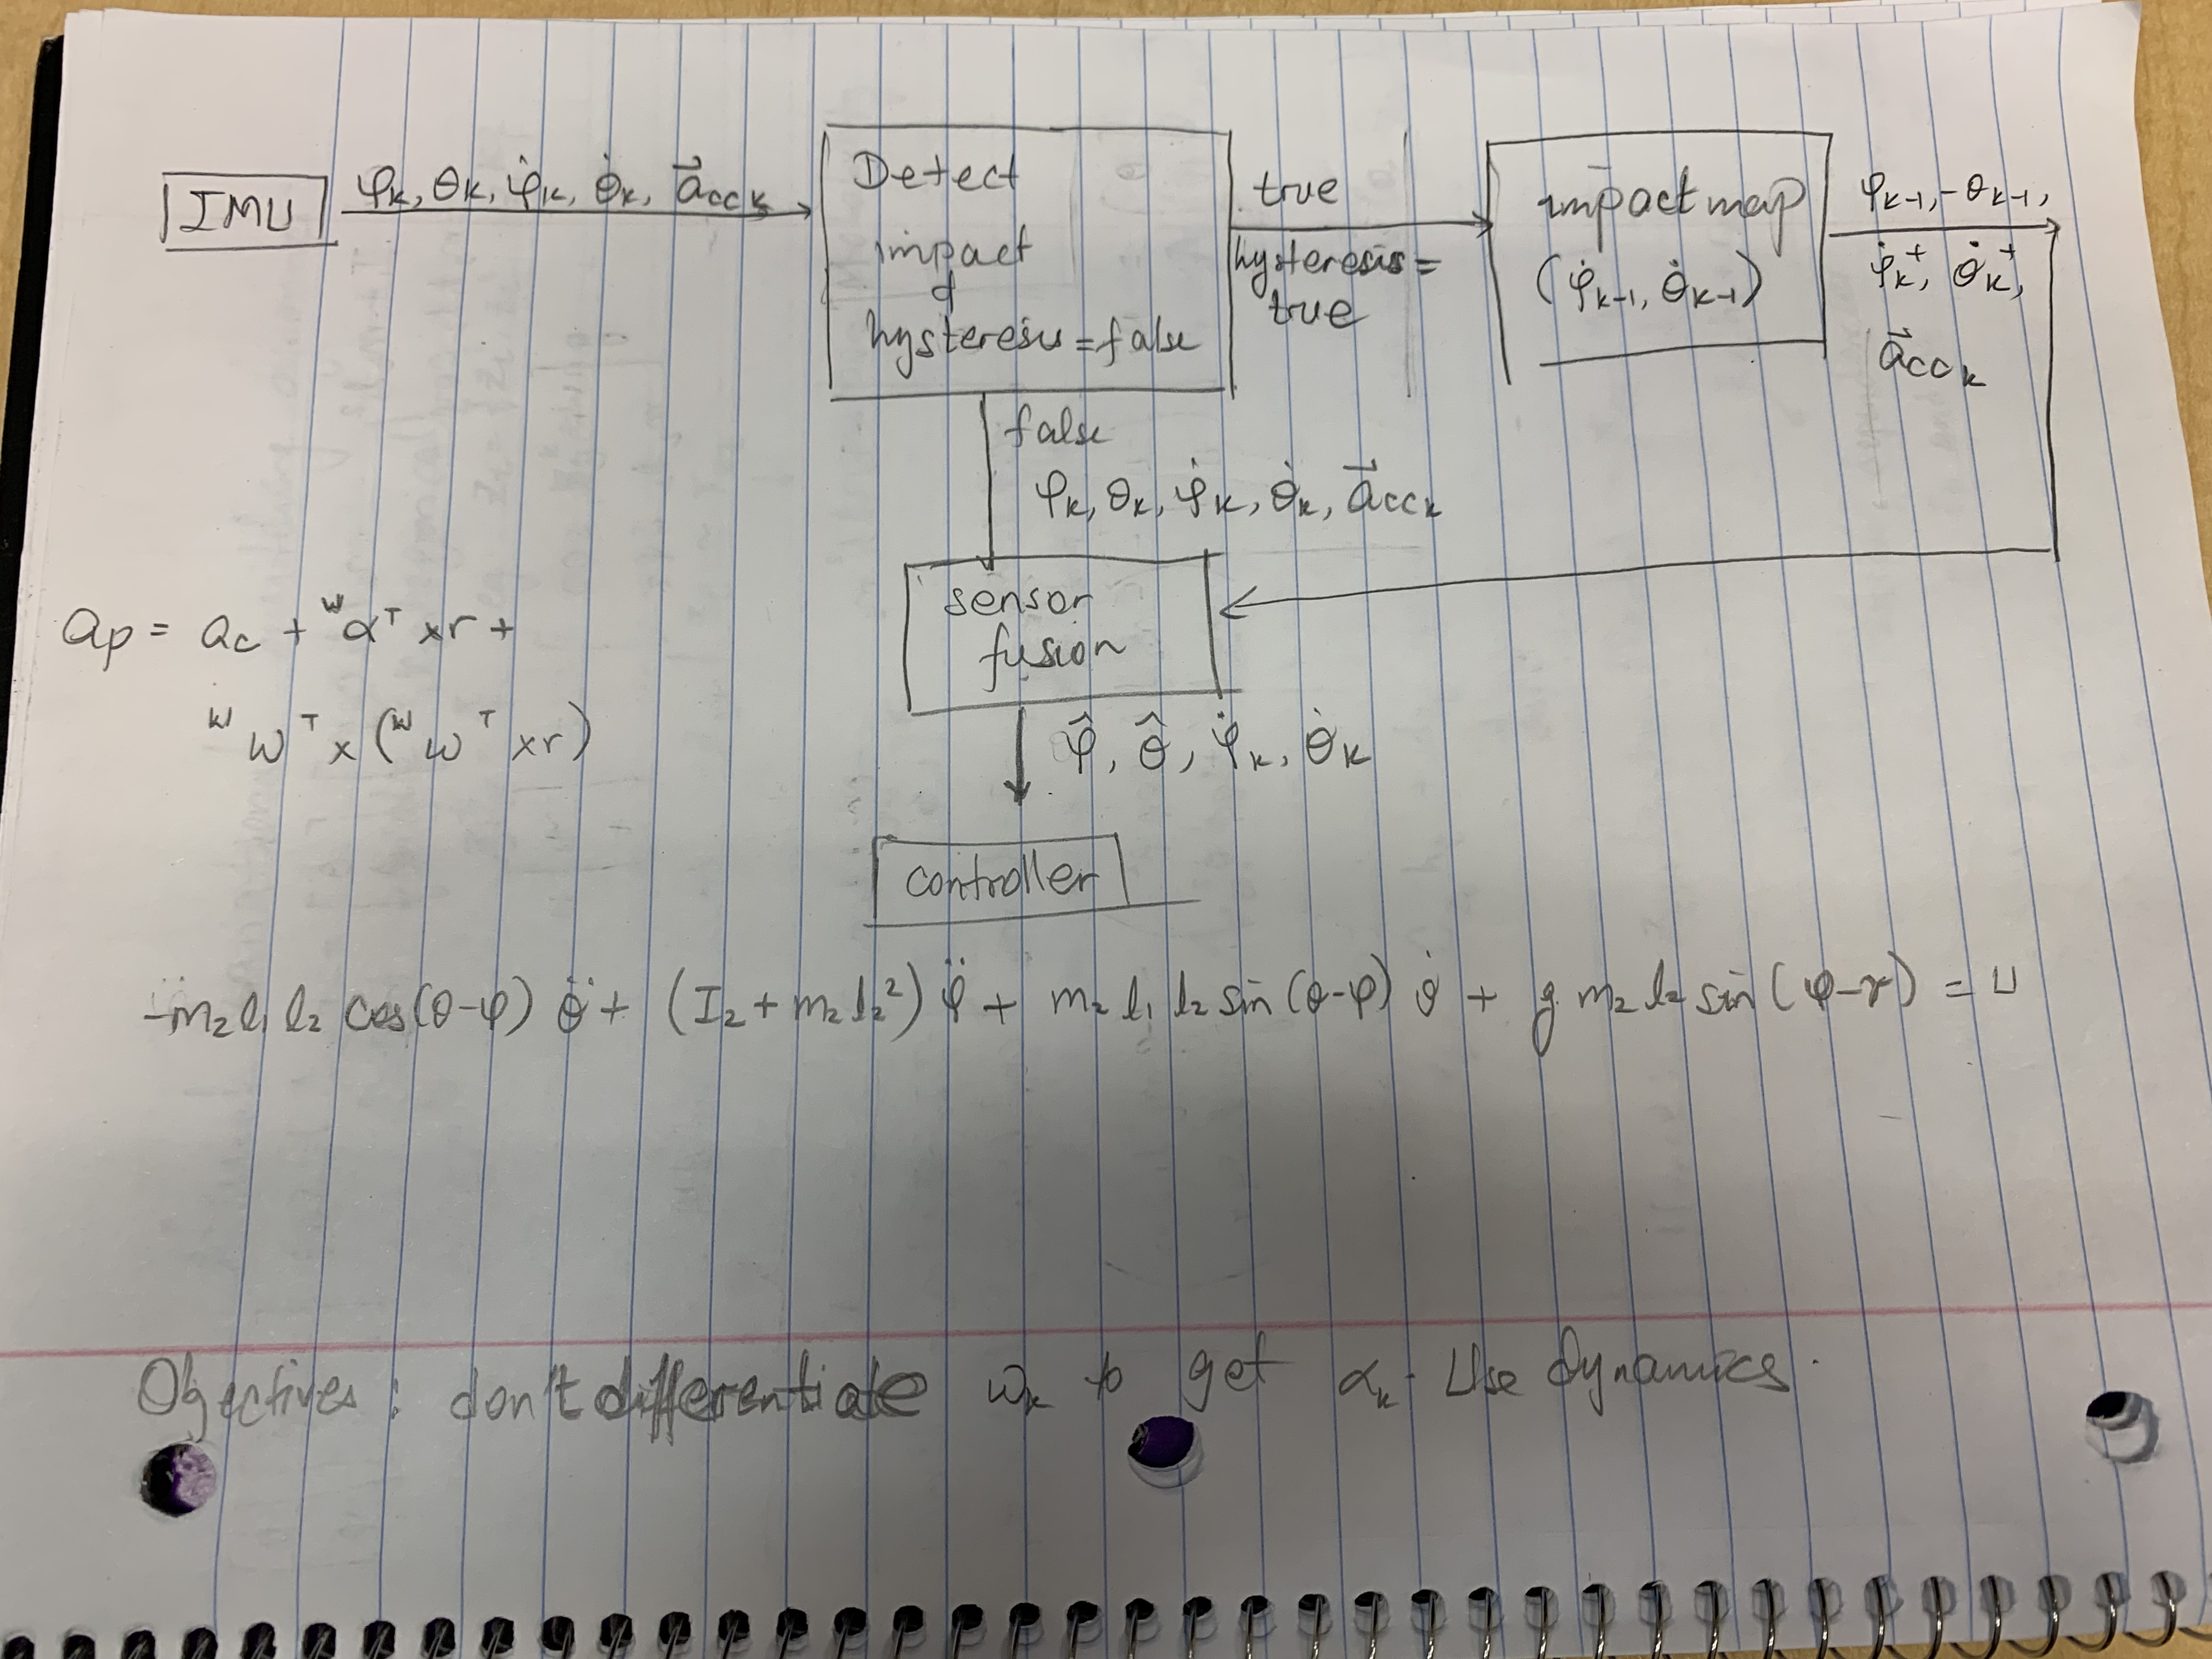 IMU
φₖ, θₖ, φ̇ₖ, θ̇ₖ, a⃗ccₖ
Detect
impact
hysteresis = false
true
hysteresis =
true
impact map
(φ̇ₖ₋₁, θ̇ₖ₋₁)
φₖ₋₁, -θₖ₋₁,
φ̇ₖ⁺, θ̇ₖ⁺,
a⃗ccₖ
false
φₖ, θₖ, φ̇ₖ, θ̇ₖ, a⃗ccₖ
aₚ = a_c + ʷαᵀ x r +
ʷωᵀ x (ʷωᵀ x r)
sensor
fusion
φ̂, θ̂, φ̇ₖ, θ̇ₖ
controller
-m₂l₁l₂ cos(θ-φ) θ̈ + (I₂ + m₂l₂²) φ̈ + m₂l₁l₂ sin(θ-φ) θ̇ + g m₂l₂ sin(φ-γ) = u
Objectives : don't differentiate ωₖ to get αₖ. Use dynamics.